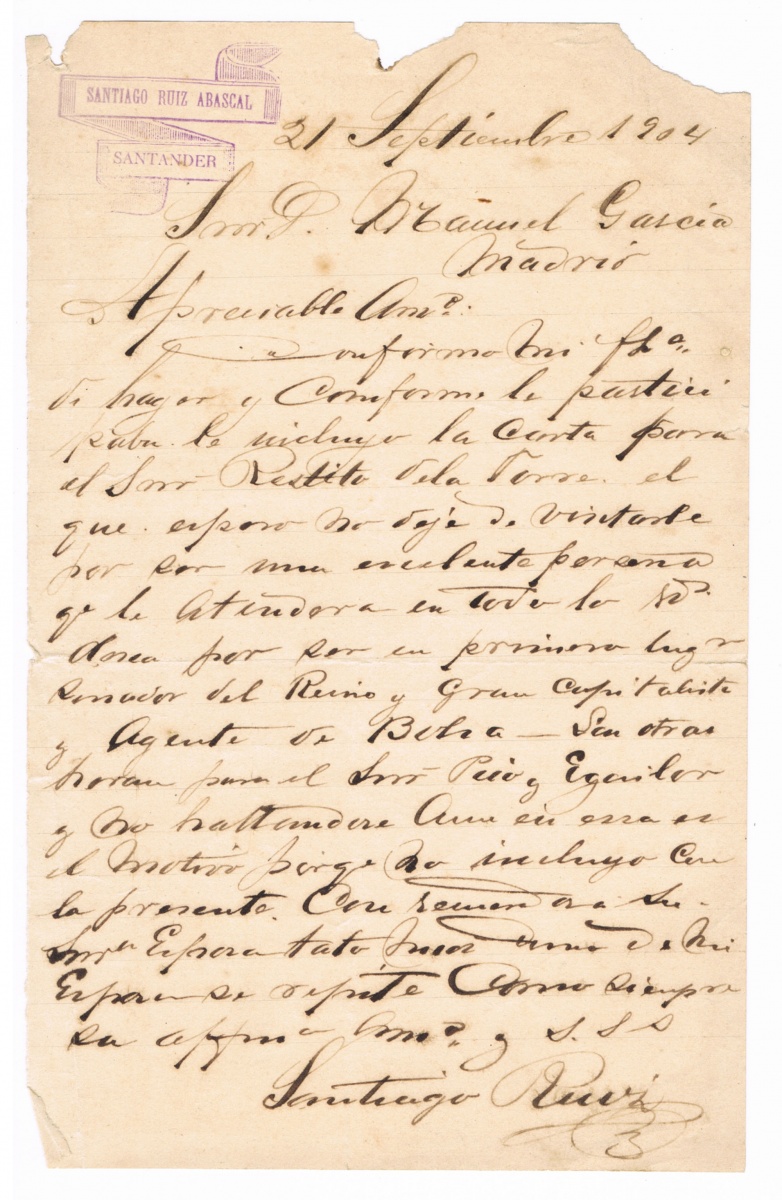 SANTIAGO RUIZ ABASCAL
SANTANDER
21 Septiembre 1904
Snr D. Manuel Garcia
Madrid
Apreciable Amº:
Conforme mi
de hayer y Comforme le partici
paba le incluyo la Carta para
el Snr Restito dela Torre. el
que espero no deje de visitarle
por ser una escelente persona
qe le Atendera en todo lo
por ser en primero lugr
senador del Reino y Gran Capitalista
y Agente de Bolsa — Sen otras
horan para el Snr Pico y Eguilor
y no hallandose Aun en essa es
el Motivo porqe no incluyo Con
la presente. Con a su
Snra Esposa tato mios Como de mi
Esposa se repite Como siempre
su affmo Amº. y S. S S
Santiago Ruiz